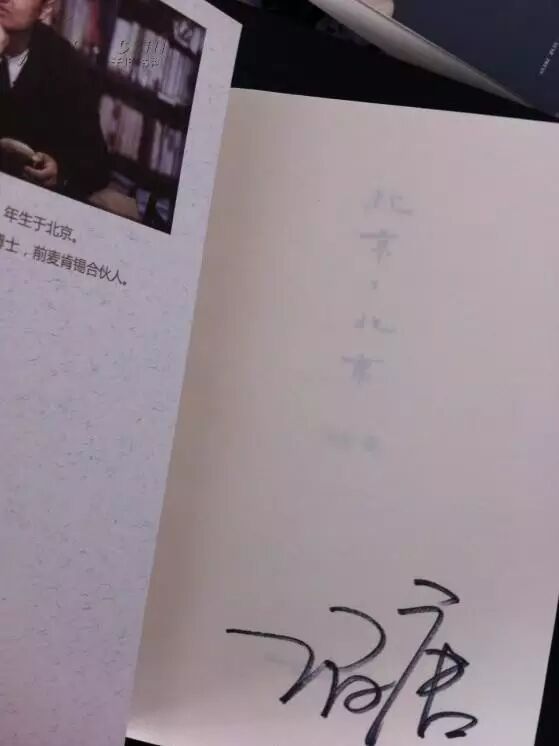 年生于北京。
博士，前麦肯锡合伙人。
北京，北京
冯唐